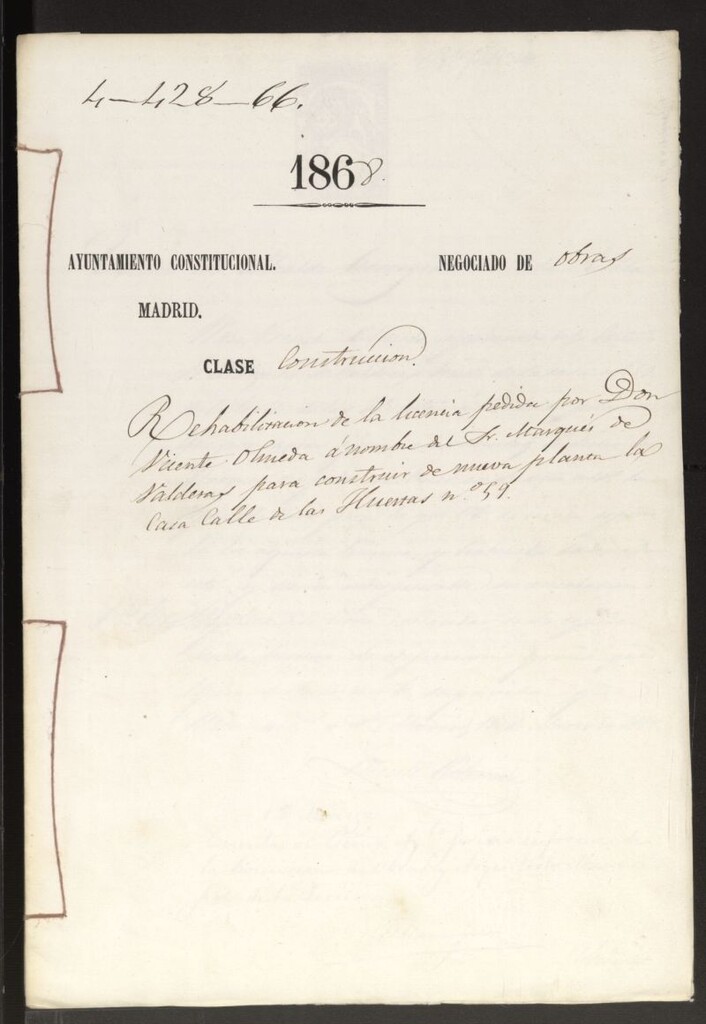 4-428-66.
1868.
AYUNTAMIENTO CONSTITUCIONAL. NEGOCIADO DE obras
MADRID.
CLASE Construccion.
Rehabilitacion de la licencia pedida por Don
Vicente Olmeda á nombre del Sr. Marqués de
Valderas para construir de nueva planta la
Casa Calle de las Huertas n.º 59.